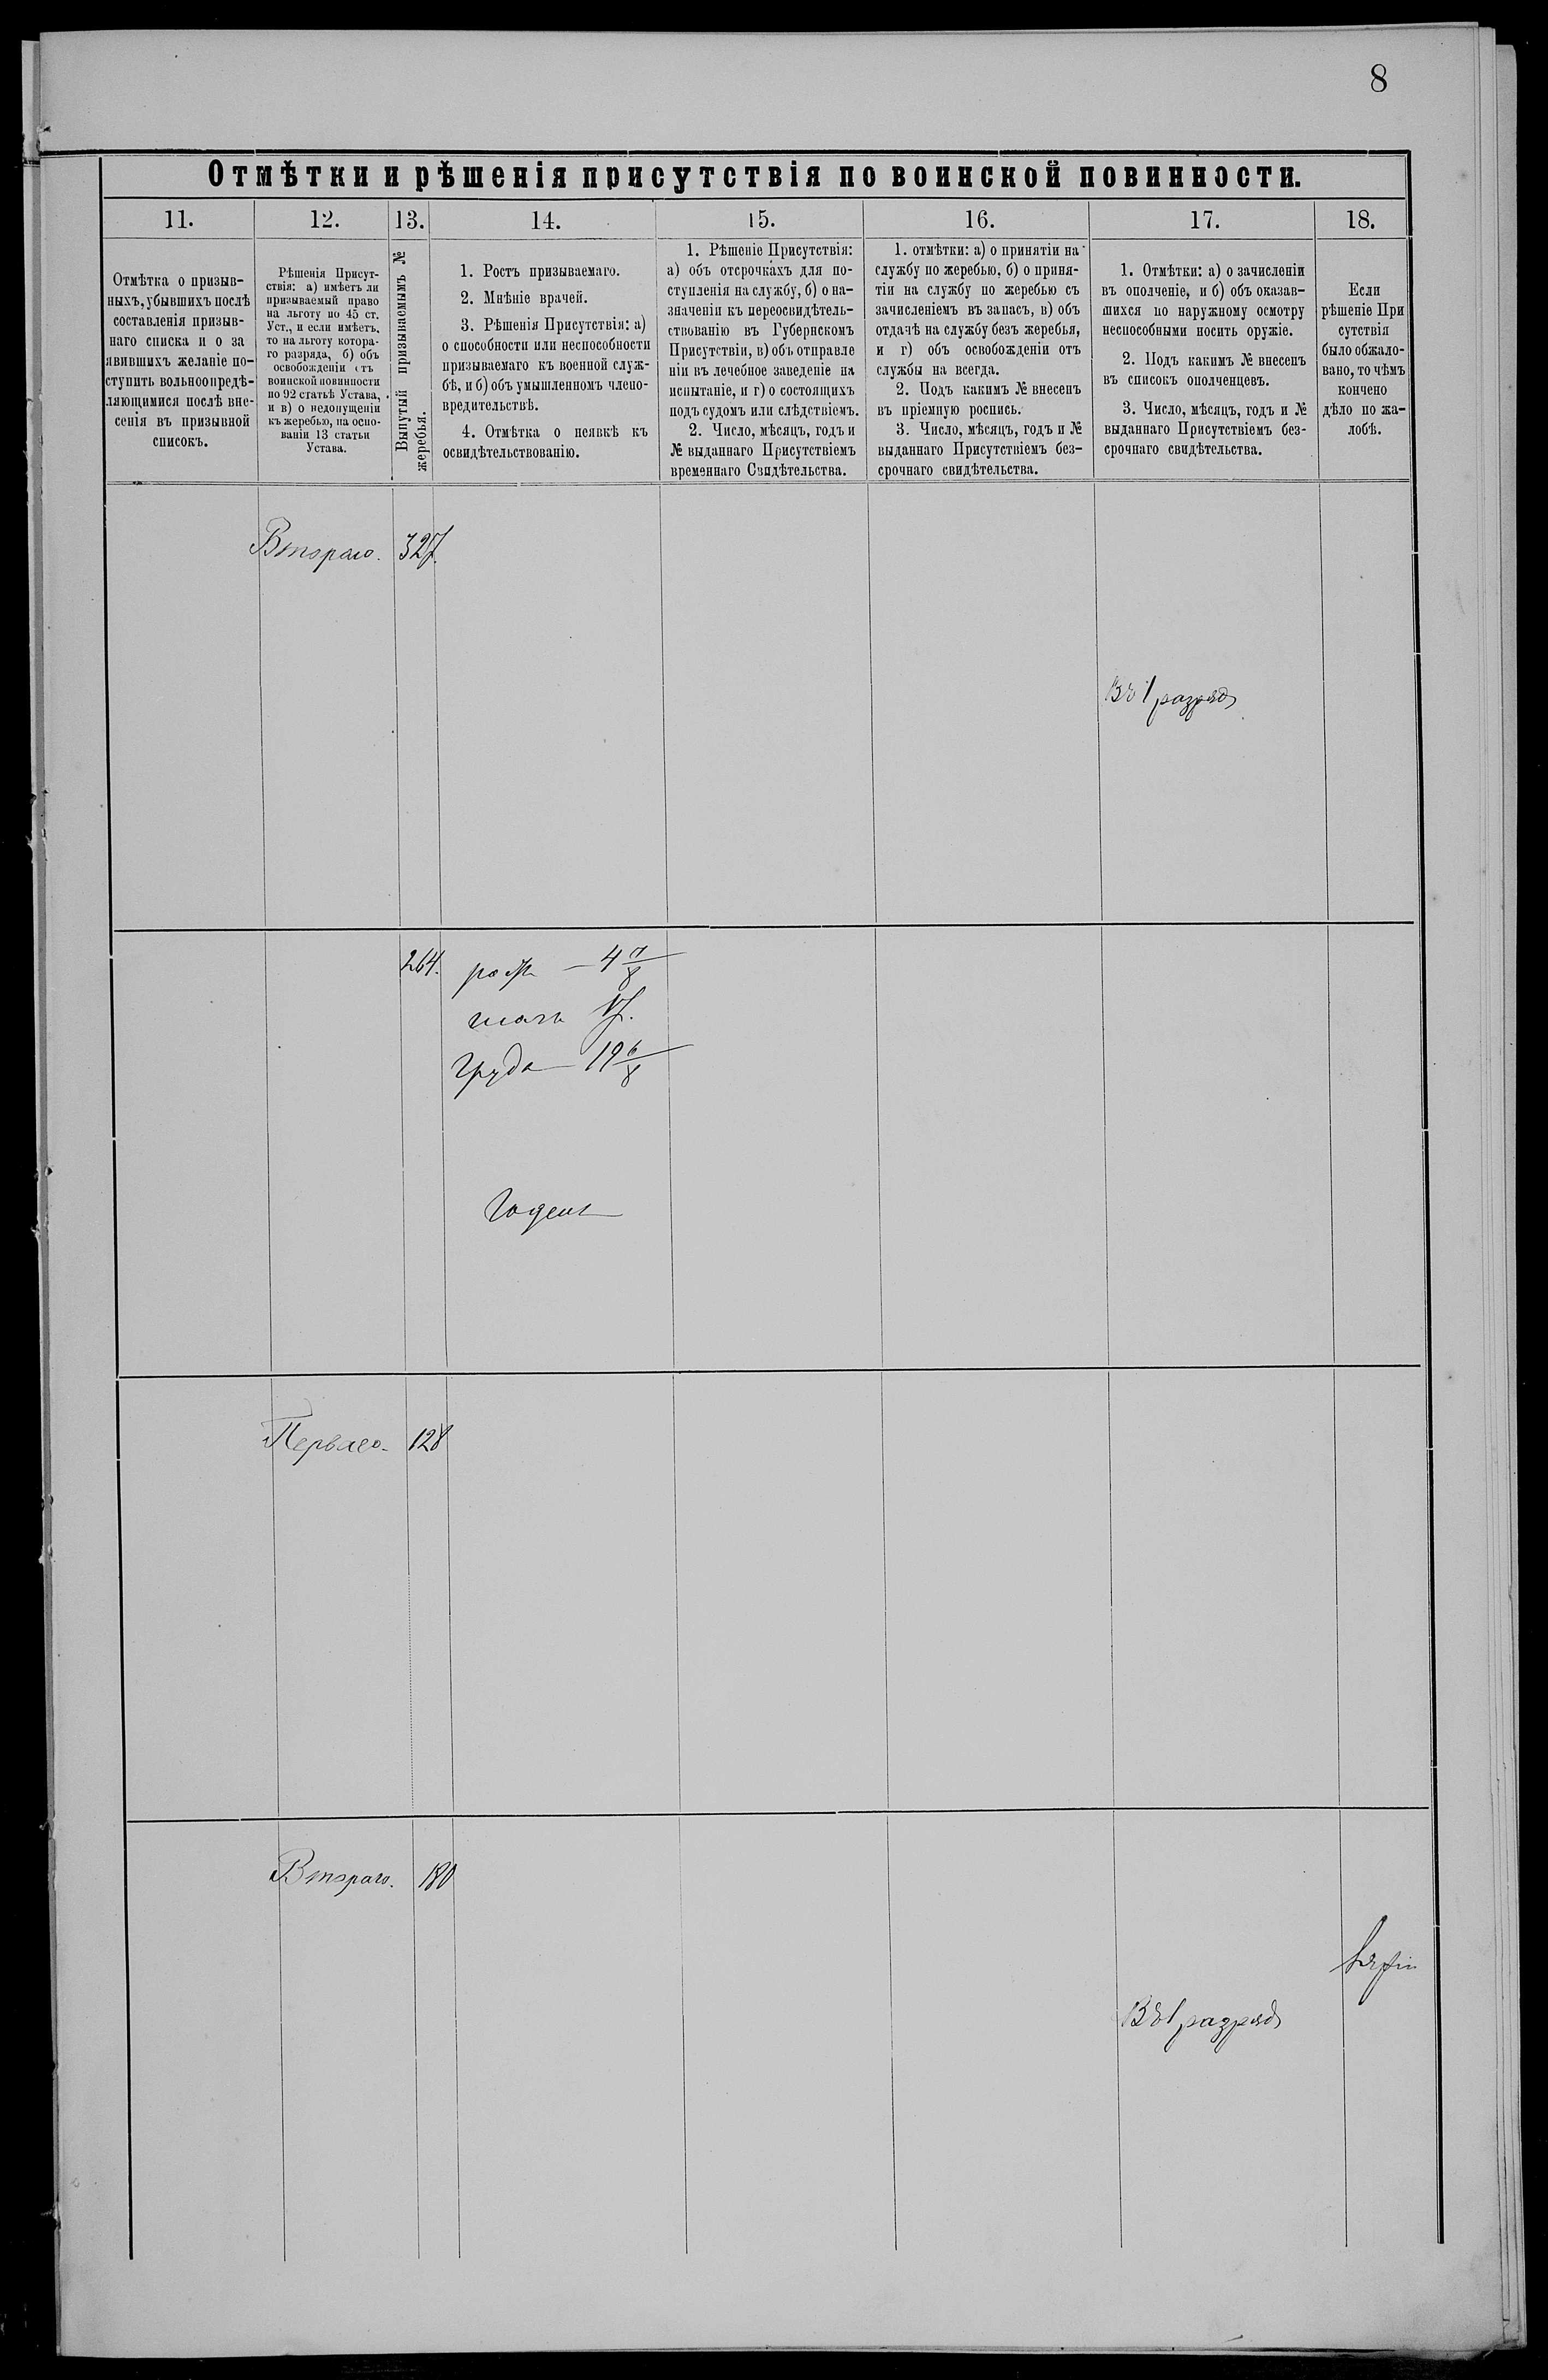 8
Отмѣтки и рѣшенія присутствія по воинской повинности.
11. 12. 13. 14. 15. 16. 17. 18.
Отмѣтка о призыв-
ныхъ, убывшихъ послѣ
составленія призыв-
наго списка и о за
явившихъ желаніе по-
ступить вольноопредѣ-
ляющимися послѣ вне-
сенія въ призывной
списокъ.
Рѣшенія Присут-
ствія: а) имѣетъ ли
призываемый право
на льготу по 45 ст.
Уст., и если имѣетъ,
то на льготу котора-
го разряда, б) объ
освобожденіи отъ
воинской повинности
по 92 статьѣ Устава,
и в) о недопущеніи
къ жеребью, на осно-
ваніи 13 статьи
Устава.
Вынутый призываемымъ №
жеребья.
1. Ростъ призываемаго.
2. Мнѣніе врачей.
3. Рѣшенія Присутствія: а)
о способности или неспособности
призываемаго къ военной служ-
бѣ, и б) объ умышленномъ члено-
вредительствѣ.
4. Отмѣтка о неявкѣ къ
освидѣтельствованію.
1. Рѣшеніе Присутствія:
а) объ отсрочкахъ для по-
ступленія на службу, б) о на-
значеніи къ переосвидѣтель-
ствованію въ Губернскомъ
Присутствіи, в) объ отправле
ніи въ лечебное заведеніе на
испытаніе, и г) о состоящихъ
подъ судомъ или слѣдствіемъ.
2. Число, мѣсяцъ, годъ и
№ выданнаго Присутствіемъ
временнаго Свидѣтельства.
1. отмѣтки: а) о принятіи на
службу по жеребью, б) о приня-
тіи на службу по жеребью съ
зачисленіемъ въ запасъ, в) объ
отдачѣ на службу безъ жеребья,
и г) объ освобожденіи отъ
службы на всегда.
2. Подъ какимъ № внесенъ
въ пріемную роспись.
3. Число, мѣсяцъ, годъ и №
выданнаго Присутствіемъ без-
срочнаго свидѣтельства.
1. Отмѣтки: а) о зачисленіи
въ ополченіе, и б) объ оказав-
шихся по наружному осмотру
неспособными носить оружіе.
2. Подъ какимъ № внесенъ
въ списокъ ополченцевъ.
3. Число, мѣсяцъ, годъ и №
выданнаго Присутствіемъ без-
срочнаго свидѣтельства.
Если
рѣшеніе При
сутствія
было обжало-
вано, то чѣмъ
кончено
дѣло по жа-
лобѣ.
Втораго. 327.
Въ 1 разряд
264. ростъ — 4 7/8
грудь — 19 6/8
Годенъ
Перваго. 128
Втораго. 180
Въ 1 разряд